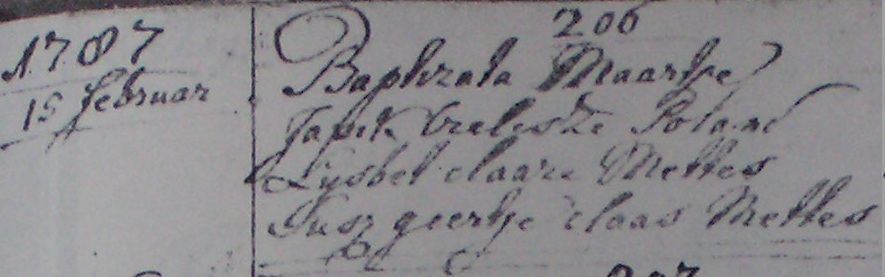 206
1787
Baptizata Maartje
15 Februar
Poland
Lijsbet claase Mettes
Susz geertje claas Mettes
207